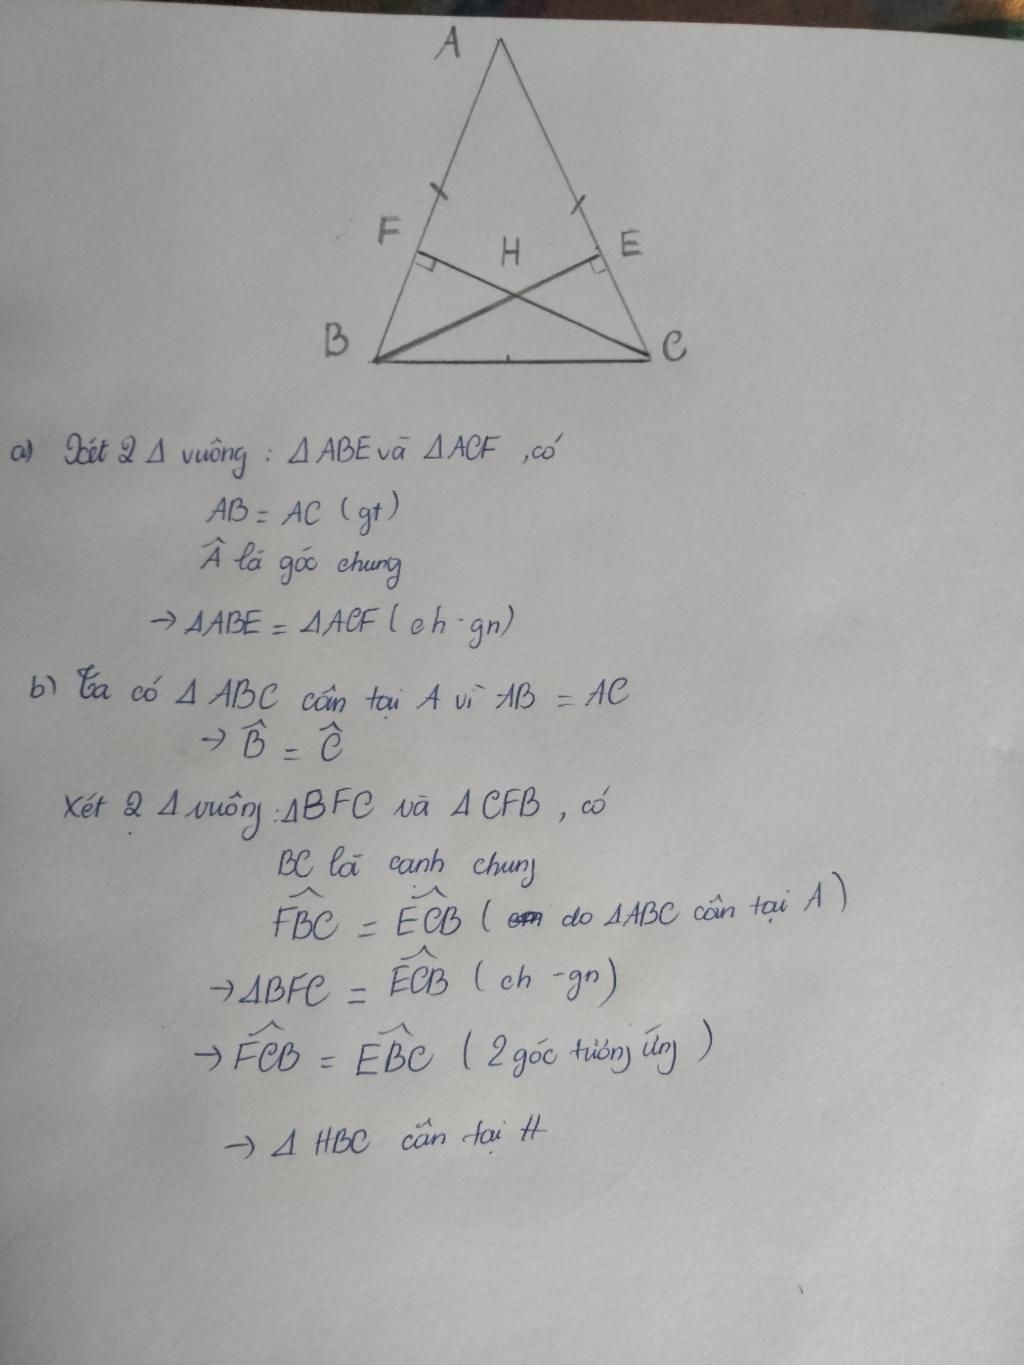 A
F
H
E
B
C
a) Xét 2 Δ vuông : Δ ABE và Δ ACF , có
AB = AC ( gt )
Â là góc chung
→ Δ ABE = Δ ACF ( ch - gn )
b) Ta có Δ ABC cân tại A vì AB = AC
→ B̂ = Ĉ
Xét 2 Δ vuông : Δ BFC và Δ CFB , có
BC là cạnh chung
F̂BC = ÊCB ( do Δ ABC cân tại A )
→ Δ BFC = ÊCB ( ch - gn )
→ F̂CB = ÊBC ( 2 góc tương ứng )
→ Δ HBC cân tại H